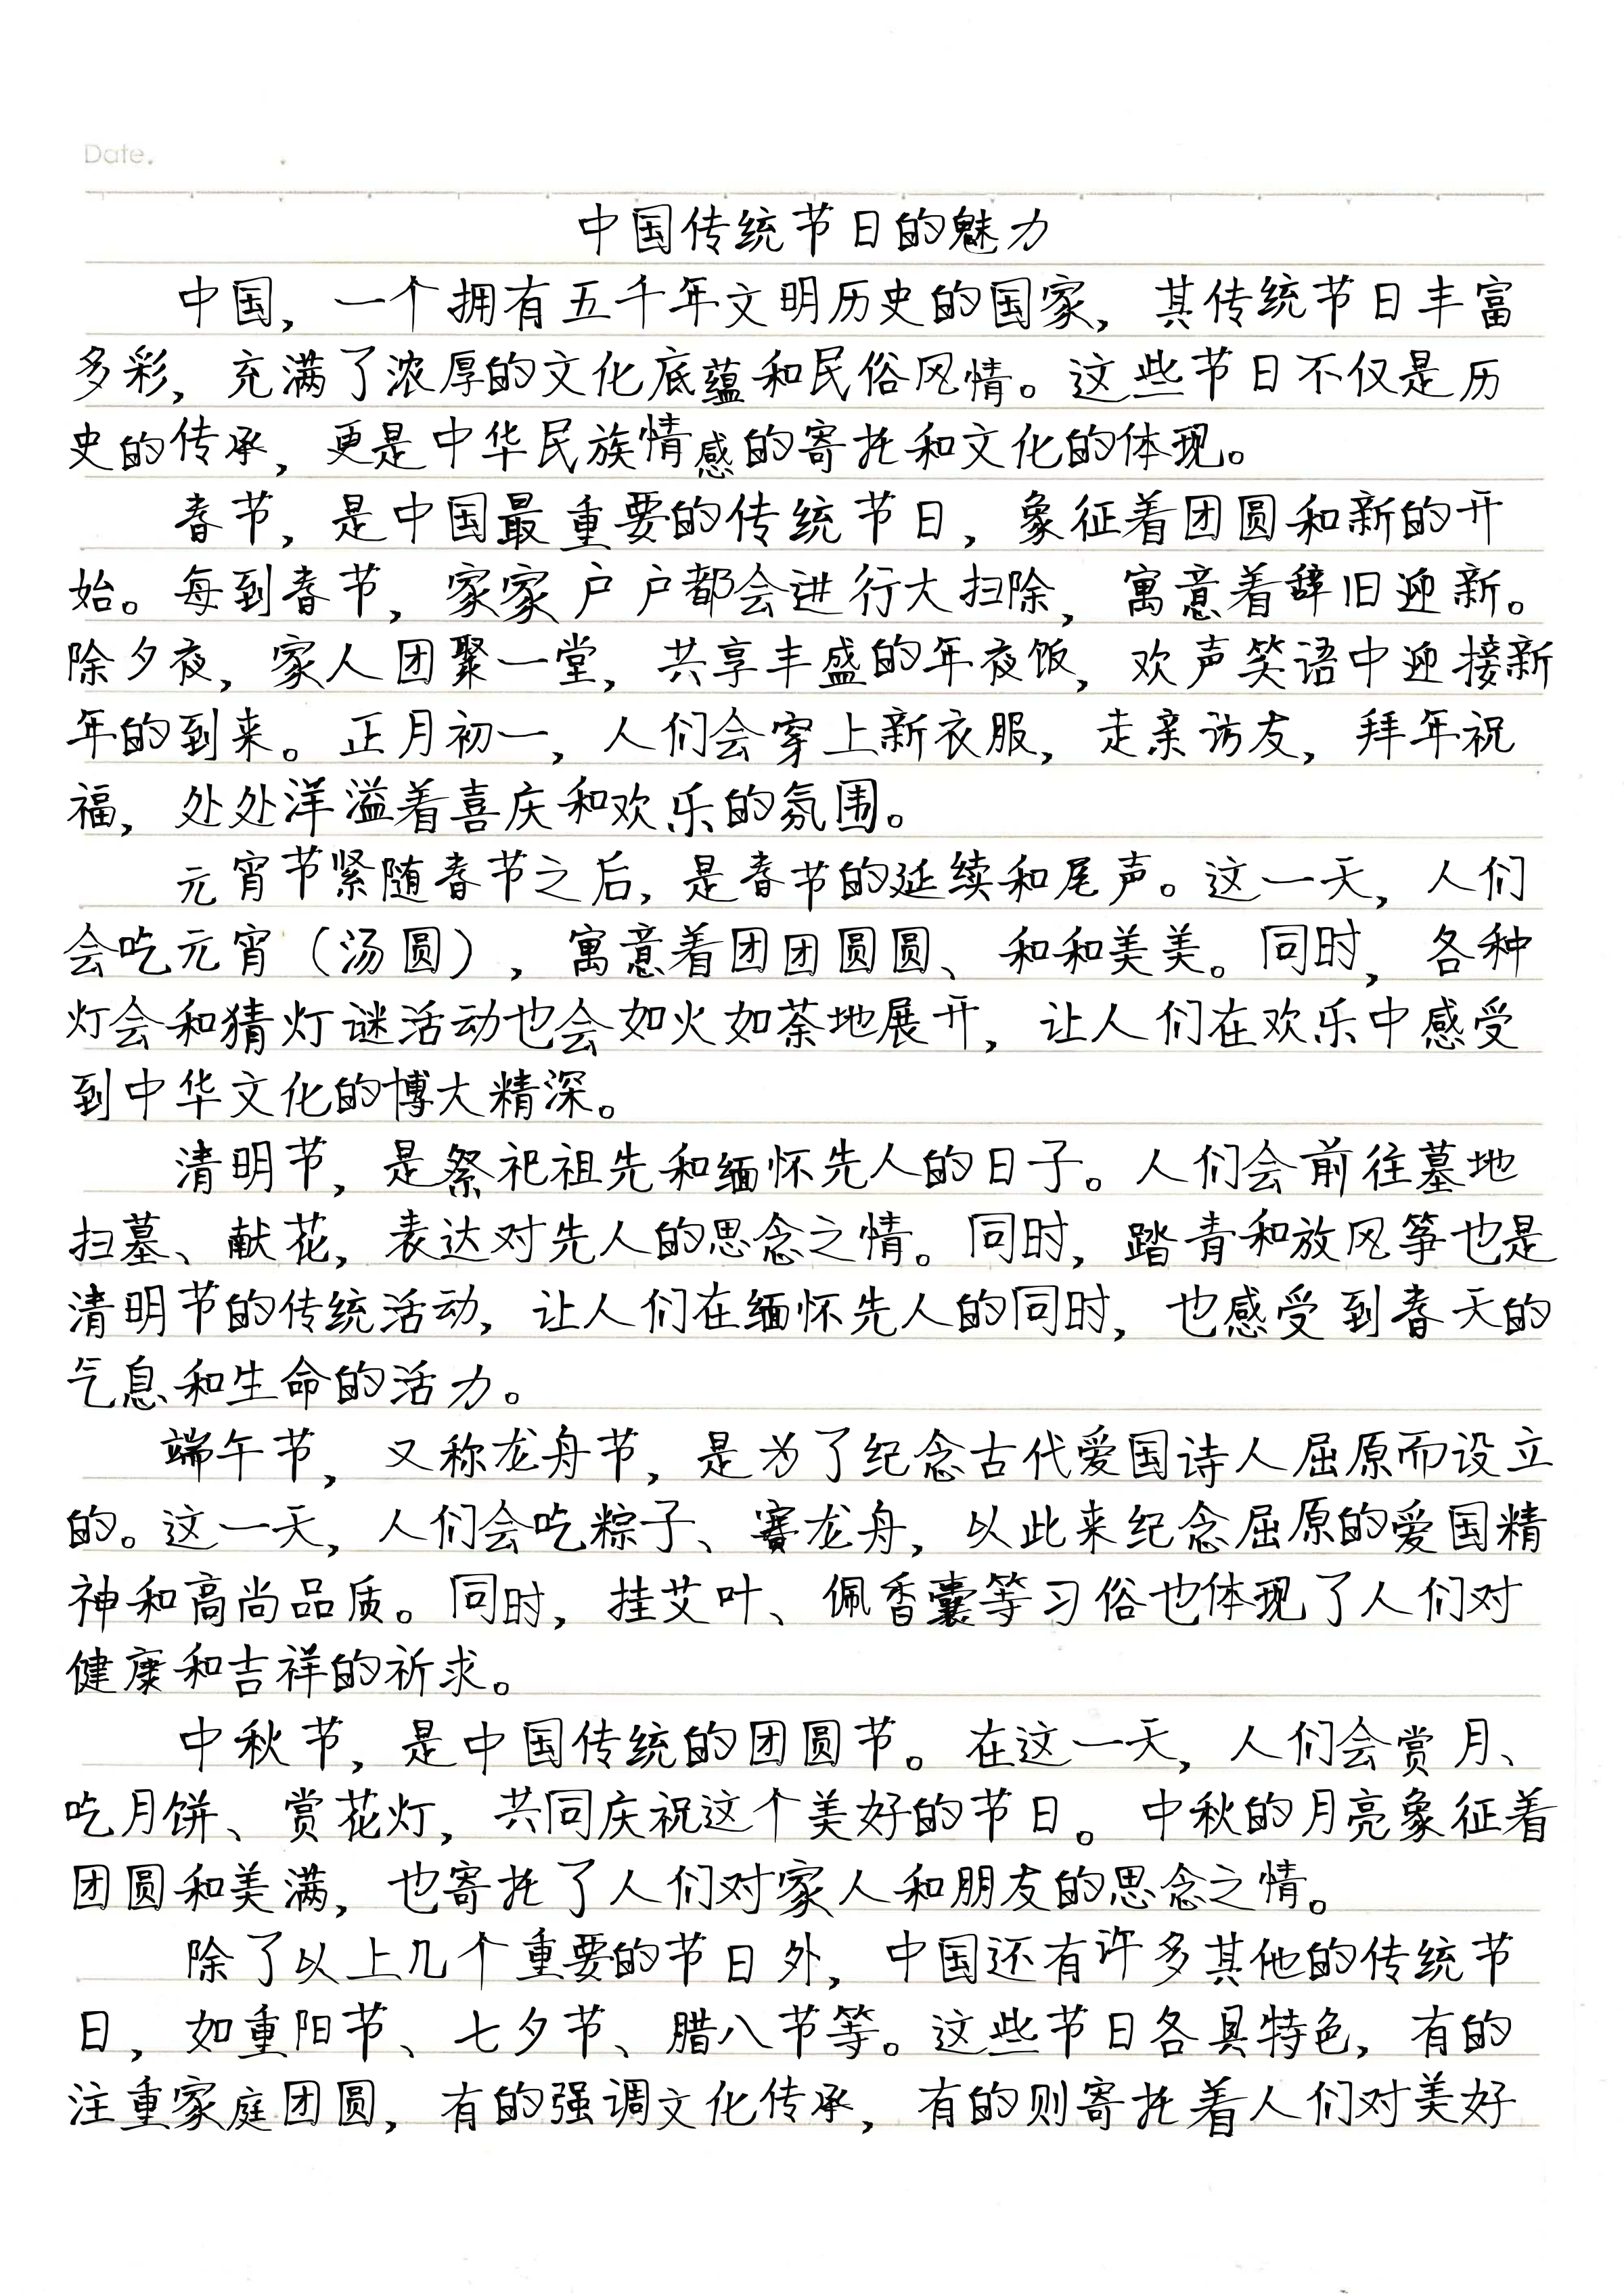 Date.
中国传统节日的魅力
中国，一个拥有五千年文明历史的国家，其传统节日丰富
多彩，充满了浓厚的文化底蕴和民俗风情。这些节日不仅是历
史的传承，更是中华民族情感的寄托和文化的体现。
春节，是中国最重要的传统节日，象征着团圆和新的开
始。每到春节，家家户户都会进行大扫除，寓意着辞旧迎新。
除夕夜，家人团聚一堂，共享丰盛的年夜饭，欢声笑语中迎接新
年的到来。正月初一，人们会穿上新衣服，走亲访友，拜年祝
福，处处洋溢着喜庆和欢乐的氛围。
元宵节紧随春节之后，是春节的延续和尾声。这一天，人们
会吃元宵（汤圆），寓意着团团圆圆、和和美美。同时，各种
灯会和猜灯谜活动也会如火如荼地展开，让人们在欢乐中感受
到中华文化的博大精深。
清明节，是祭祀祖先和缅怀先人的日子。人们会前往墓地
扫墓、献花，表达对先人的思念之情。同时，踏青和放风筝也是
清明节的传统活动，让人们在缅怀先人的同时，也感受到春天的
气息和生命的活力。
端午节，又称龙舟节，是为了纪念古代爱国诗人屈原而设立
的。这一天，人们会吃粽子、赛龙舟，以此来纪念屈原的爱国精
神和高尚品质。同时，挂艾叶、佩香囊等习俗也体现了人们对
健康和吉祥的祈求。
中秋节，是中国传统的团圆节。在这一天，人们会赏月、
吃月饼、赏花灯，共同庆祝这个美好的节日。中秋的月亮象征着
团圆和美满，也寄托了人们对家人和朋友的思念之情。
除了以上几个重要的节日外，中国还有许多其他的传统节
日，如重阳节、七夕节、腊八节等。这些节日各具特色，有的
注重家庭团圆，有的强调文化传承，有的则寄托着人们对美好